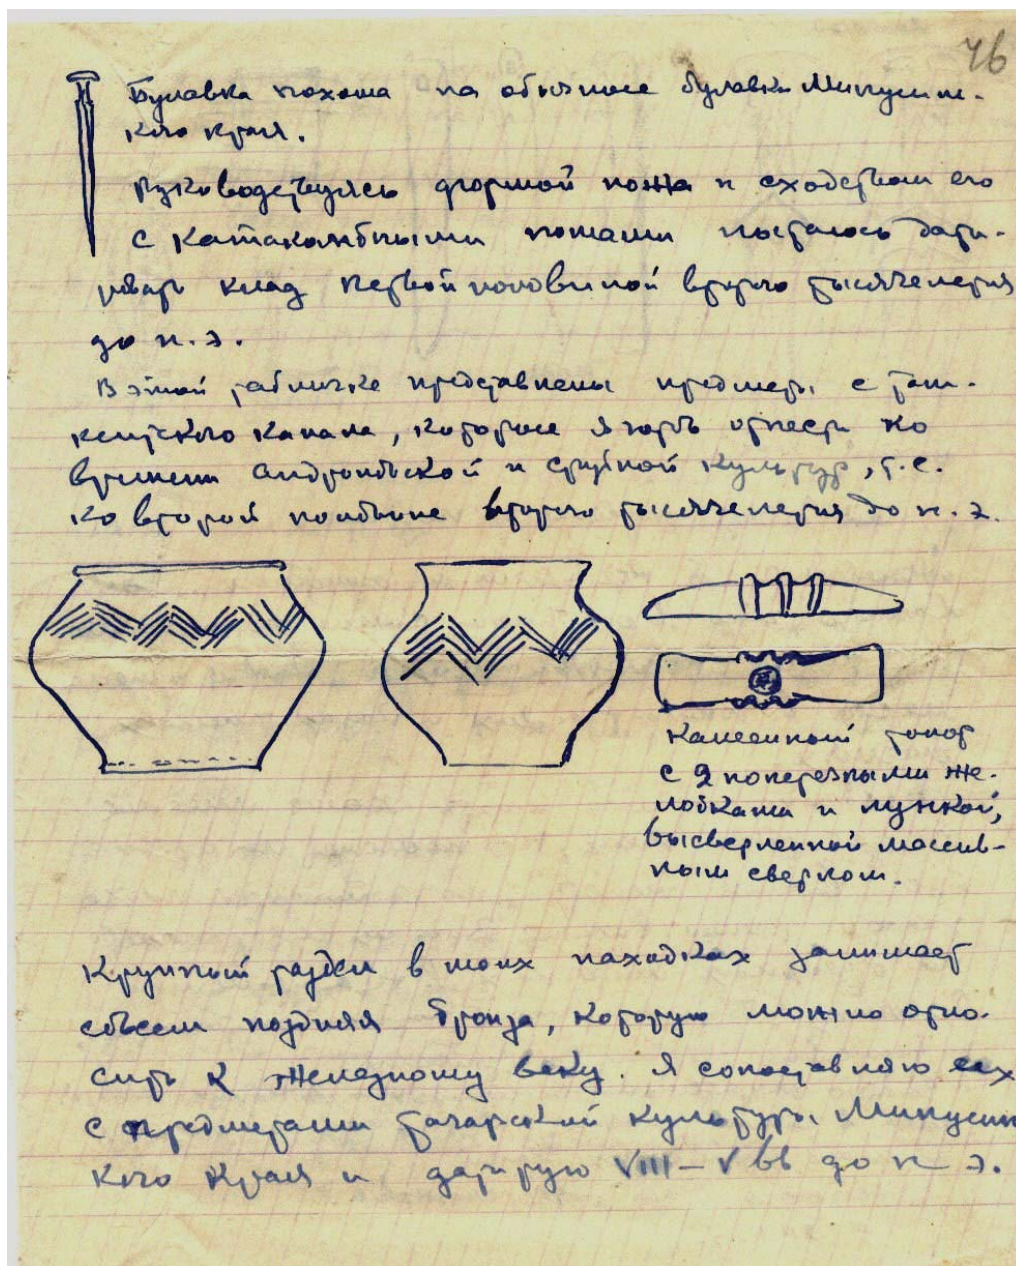 46
Булавка похожа на обычные булавки Минусинс-
кого края.
Руководствуясь формой ножа и сходством его
с катакомбными ножами пытаюсь дати-
ровать клад первой половиной второго тысячелетия
до н.э.
В этой табличке представлены предметы с Таш-
кентского канала, которые я готов отнести ко
времени андроновской и срубной культур, т.е.
ко второй половине второго тысячелетия до н.э.
Каменный топор
с 2 поперечными же-
лобками и лункой,
высверленной массив-
ным сверлом.
Крупный раздел в моих находках занимает
совсем поздняя бронза, которую можно отно-
сить к железному веку. Я сопоставляю их
с предметами тагарской культуры Минусинс
кого края и датирую VIII–V вв до н э.